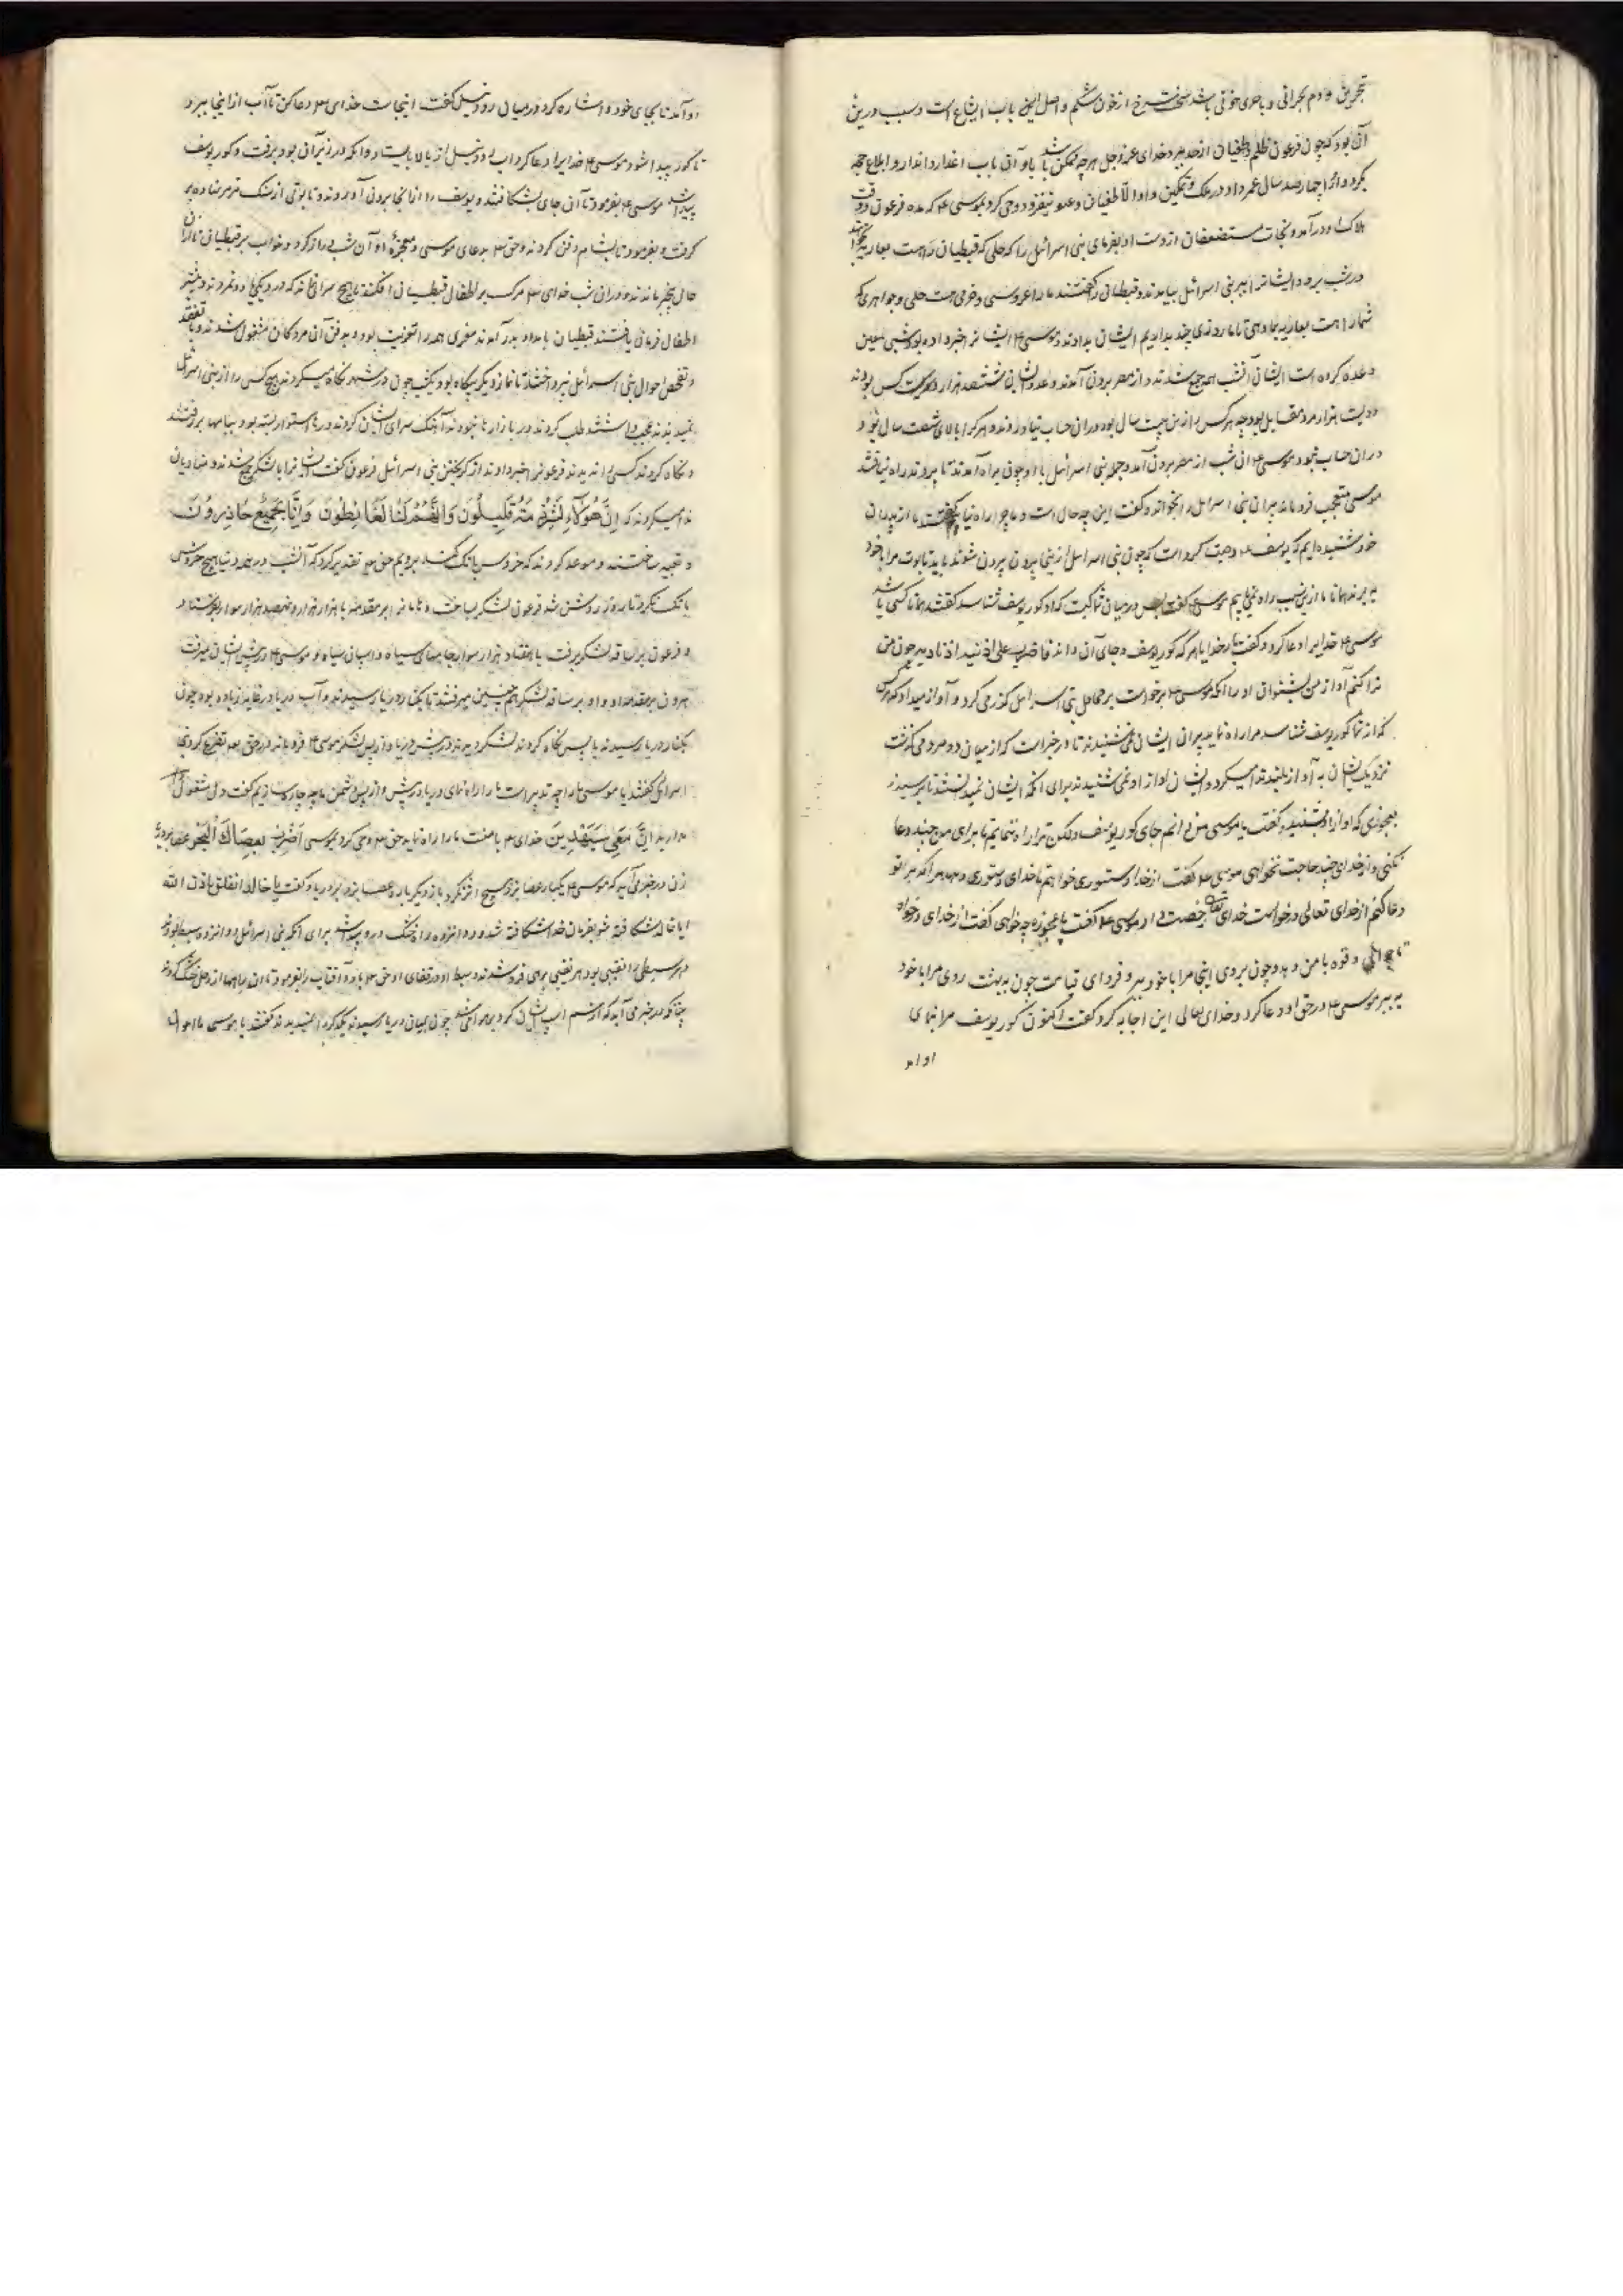 آن بود که چون فرعون ظلم و طغیان از حد ببرد خدای عزوجل هر چه ممکن باشد با او آن باب اعذار و انذار و ابلاغ حجه
بکرد و او را چهارصد سال عمر داد در ملک و تمکین و او الا طغیان و عتو نیفزود وحی کرد بموسی ع که مده فرعون و وقت
هلاک او درآمد و نجات مستضعفان از دست او بفرمای بنی اسرائیل را که حلی که قبطیان راهست بعاریه بخواهند
در شب برود ایشانرا ببر بنی اسرائیل بیامدند و قبطیان را گفتند ما را عروسی و خرمی هست حلی و جواهری که
شما را هست بعاریه بما دهی تا ما روزی چند بداریم ایشان بدادند و موسی ع ایشانرا خبر داده بود شبی معین
وعده کرده است ایشان آنشب همه جمع شدند و از مصر برون آمدند و عدد ایشان ششصد هزار و بیست کس بودند
مرد مقاتل بود چه هر کس را از بن بیست سال بود در آن حساب نیاوردند و هر کرا بالای شصت سال بود
در آن حساب نبود موسی ع آن شب از مصر برون آمد و جمله بنی اسرائیل با او چون براه آمدند تا بروند راه نیافتند
موسی متعجب فرو ماند پیران بنی اسرائیل را بخواند و گفت این چه حال است و ما چرا راه نیابیم گفتند ما از پدران
خود شنیده ایم که یوسف ع وصیت کرده است که چون بنی اسرائیل از زمین برون شوند باید تابوت مرا با خود
ببرند همانا ما از این سبب راه نمی یابیم موسی ع گفت پس در میان شما کیست که او گور یوسف شناسد گفتند همانا کسی باشد
موسی ع خدایرا دعا کرد و گفت بار خدایا هر که گور یوسف و جای آن داند
ندا کنم آواز من بشنوان او را آنکه موسی ع برخواست بر محافل بنی اسرائیل گذر می کرد و آواز میداد که هر کس
که از شما گور یوسف شناسد مرا راه نماید پیران ایشان نمی شنیدند تا در خبر است که از میان دو مرد می گذشت
نزدیک ایشان به آواز بلند ندا میکرد و ایشان آواز او نمی شنیدند برای آنکه ایشان نمیدانستند تا برسید
بعجوزی که آواز او بشنید و گفت یا موسی من دانم جای گور یوسف ولکن ترا راه ننمایم تا برای من چند دعا
نکنی و از خدای چند حاجت نخواهی موسی ع گفت از خدا دستوری خواهم تا خدای دستوری دهد
دعا کنم از خدای تعالی درخواست خدای تعالی رخصت داد موسی ع گفت یا عجوزه چه خواهی گفت از خدای درخواه
تا جوانی و قوه با من دهد و چون بروی اینجا مرا با خود ببر و فردای قیامت چون به بهشت روی مرا با خود
به ببر موسی ع در حق او دعا کرد و خدای تعالی این اجابه کرد گفت اکنون گور یوسف مرا بنمای
او آمد
او آمد تا بجای خود و اشاره کرد در میان رود نیل گفت اینجاست خدای را دعا کن تا آب از اینجا ببرد
تا گور پیدا شود موسی ع خدایرا دعا کرد آب رود نیل از بالا بایستاد و آنکه در زیر آن بود برفت و گور یوسف
پیدا شد موسی ع بفرمود تا آن جای بشکافتند و یوسف را از آنجا برون آوردند و تابوتی از سنگ مرمر نهاده بر
گرفت و بفرمود تا بشام دفن کردند و حق تع بدعای موسی و معجزهٔ او آن شب دراز کرد و خواب بر قبطیان
حال بیخبر ماندند و در آن شب خدای تع مرگ بر اطفال قبطیان افکند تا هیچ سرای نماند که در او یکی یا دو نمردند و بیشتر
اطفال فرمان یافتند قبطیان بامداد بدر آمدند همه را تعزیت بود و بدفن آن مردگان مشغول شدند و با تفقد
و تفحص احوال بنی اسرائیل نپرداختند تا نماز دیگر بیگاه بود چون در شهر نگاه میکردند هیچ کس را از بنی اسرائیل
نمیدیدند عجب داشتند طلب کردند در بازارها نبودند آهنگ سرای ایشان کردند درها استوار بسته بود ببامها برفتند
و نگاه کردند کسی را ندیدند فرعونرا خبر دادند از گریختن بنی اسرائیل فرعون گفت تا لشکر جمع شدند و منادیان
ندا میکردند که إِنَّ هٰؤُلَاءِ لَشِرْذِمَةٌ قَلِیلُونَ وَإِنَّهُمْ لَنَا لَغَائِظُونَ وَإِنَّا لَجَمِیعٌ حَاذِرُونَ
و تعبیه ساختند و موعد کردند که خروس بانگ کند برویم حق تع تقدیر کرد که آنشب در همه دنیا هیچ خروس
بانگ نکرد تا روز روشن شد فرعون لشکر بساخت و هامانرا بر مقدمه با هزار هزار و ششصد هزار سوار بفرستاد
و فرعون بر ساقه لشکر برفت با هفتاد هزار سوار با جامهای سیاه و اسبان سیاه و موسی ع در پیش ایشان میرفت
هرون بر مقدمه او و او بر ساقه لشکر همچنین میرفتند تا بکنار دریا رسیدند و آب دریا در غایه زیاده بود چون
بکنار دریا رسیدند باپس نگاه کردند لشکر دیدند در پیش دریا و از پس لشکر موسی ع فرو ماند در حق تع تضرع کرد بنی
اسرائیل گفتند یا موسی ما را چه تدبیر است ما را راه نمای دریا در پیش و از پس دشمن ما چه چاره سازیم گفت دل مشغول
مدارید إِنَّ مَعِیَ رَبِّی سَیَهْدِینِ خدای تع با منست ما را راه نماید حق تع وحی کرد بموسی اَضْرِبْ بِعَصَاكَ الْبَحْرَ عصا بر دریا
زن در خبر می آید که موسی ع یکبار عصا بزد هیچ اثر نکرد باز دیگر باره عصا بزد بر دریا و گفت یا خالد انفلق باذن الله
ایا خالد شکافته شو بفرمان خدا شکافته شد و دوانزده راه خشک درو پیدا شد برای آنکه بنی اسرائیل دوانزده سبط بودند
و هر سبطی را نقیبی بود هر نقیبی براهی فرو شدند و سبط او در قفای او حق تع باد و آفتاب را بفرمود تا آن راهها از وحل خشک کردند
چنانکه در خبر می آید که از سم اسپ ایشان گرد بر هوا می شد چون بمیان دریا رسیدند یکدیگر را نمیدیدند گفتند یا موسی ما احوال